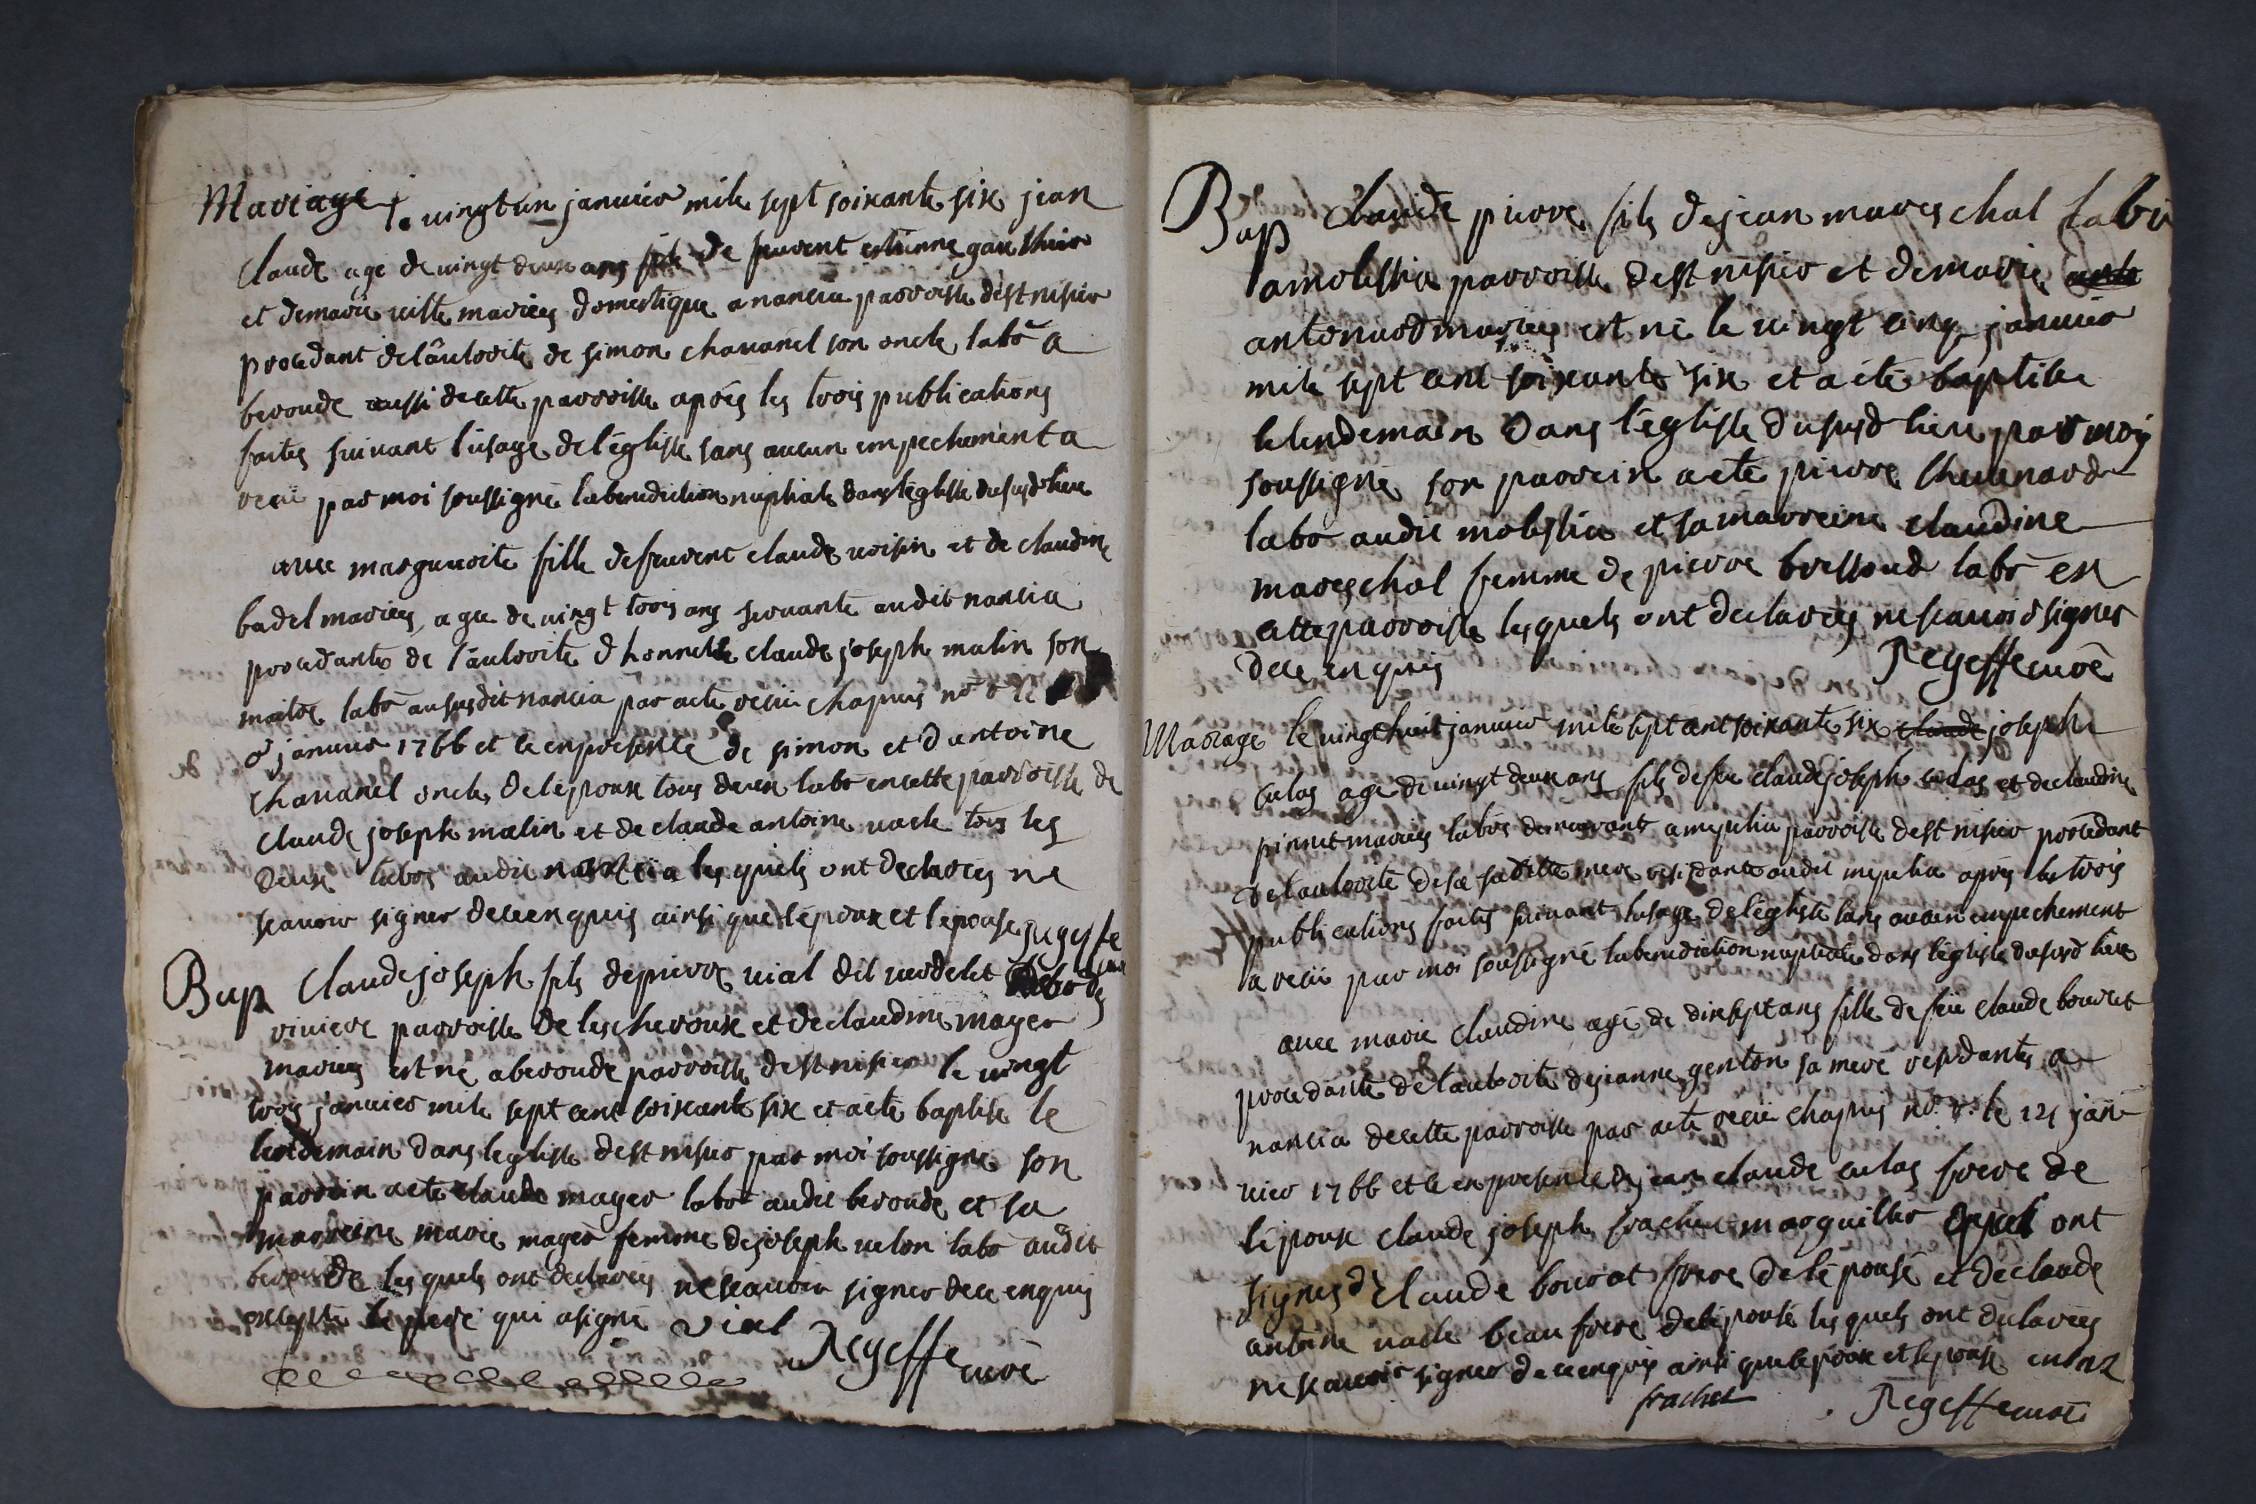 Mariage le vingt un janvier mile sept soixante six jean
claude agé de vingt deux ans fils de feuvent estienne gauthier
et de marie mariés domestique a nancia parroisse de st nisier
procedant de l'autorité de simon chavanel son oncle labor a
beroude aussi de cette parroisse après les trois publications
faites suivant l'usage de l'eglisse sans aucun empechement a
receu par moi soussigné la benediction nuptiale dans l'eglisse du susd lieu
avec marguerite fille de feuvent claude voisin et de claudine
badel mariés, agée de vingt trois ans servante audit nancia
procedante de l'autorité d'honneste claude joseph matin son
maitre labor au susdit nancia par acte receu chapuis nore le
janvier 1766 et ce en presence de simon et d'antoine
chavanel oncles de l'epoux tous deux labor en cette parroisse de
claude joseph matin et de claude antoine vacle tous les
deux labors audit nancia lesquels ont declarés ne
scavoir signer de ce enquis ainsi que l'époux et l'epouse Regeffe
curé
Bap claude joseph fils de pierre vial dit verdelet labor de
riviere parroisse de les cheroux et de claudine mayer
mariés est né a beroude parroisse de st nisier le vingt
trois janvier mile sept cent soixante six et a eté baptise le
lendemain dans leglisse de st nisier par moi soussigné son
parrein a eté claude mayer labor audit beroude et sa
marreine marie mayer femme de joseph velon labor audit
beroude lesquels ont declarés ne scavoir signer de ce enquis
excepté le pere qui a signé vial
Regeffe curé
Bap claude pierre fils de jean mareschal labor
a molissia parroisse de st nisier et de marie
antonuod mariés est né le vingt cinq janvier
mile sept cent soixante six et a eté baptisse
le lendemain dans l'eglisse du susd lieu par moy
soussigné son parrein a eté pierre thevenard
labor audit molissia et sa marreine claudine
mareschal femme de pierre bressoud labor en
cette parroisse lesquels ont declarés ne scavoir signer
de ce enquis Regeffe curé
Mariage le vingt huit janvier mile sept cent soixante six claude joseph
culas agé de vingt deux ans fils de feu claude joseph culas et de claudine
pirnet mariés labors demeurant a mepulia parroisse de st nisier procedant
de l'autorité de sa ditte mere residante audit mepulia après les trois
publications faites suivant l'usage de l'eglisse sans aucun empechement
a receu par moi soussigné la benediction nuptiale dans l'eglisse du susd lieu
avec marie claudine agé de dix sept ans fille de feu claude bourcet
procedante de l'autorité de jeanne genton sa mere residantes a
nancia de cette parroisse par acte receu chapuis nore le 21 jan
vier 1766 et ce en presence de jean claude culas frere de
l'epoux claude joseph frachet marguillier ont
signés de claude bourcet frere de l'épouse et de claude
antoine vacle beau frere de l'épouse lesquels ont declarées
ne scavoir signer de ce enquis ainsi que l'epoux et l'epouse culaz
frachet Regeffe curé